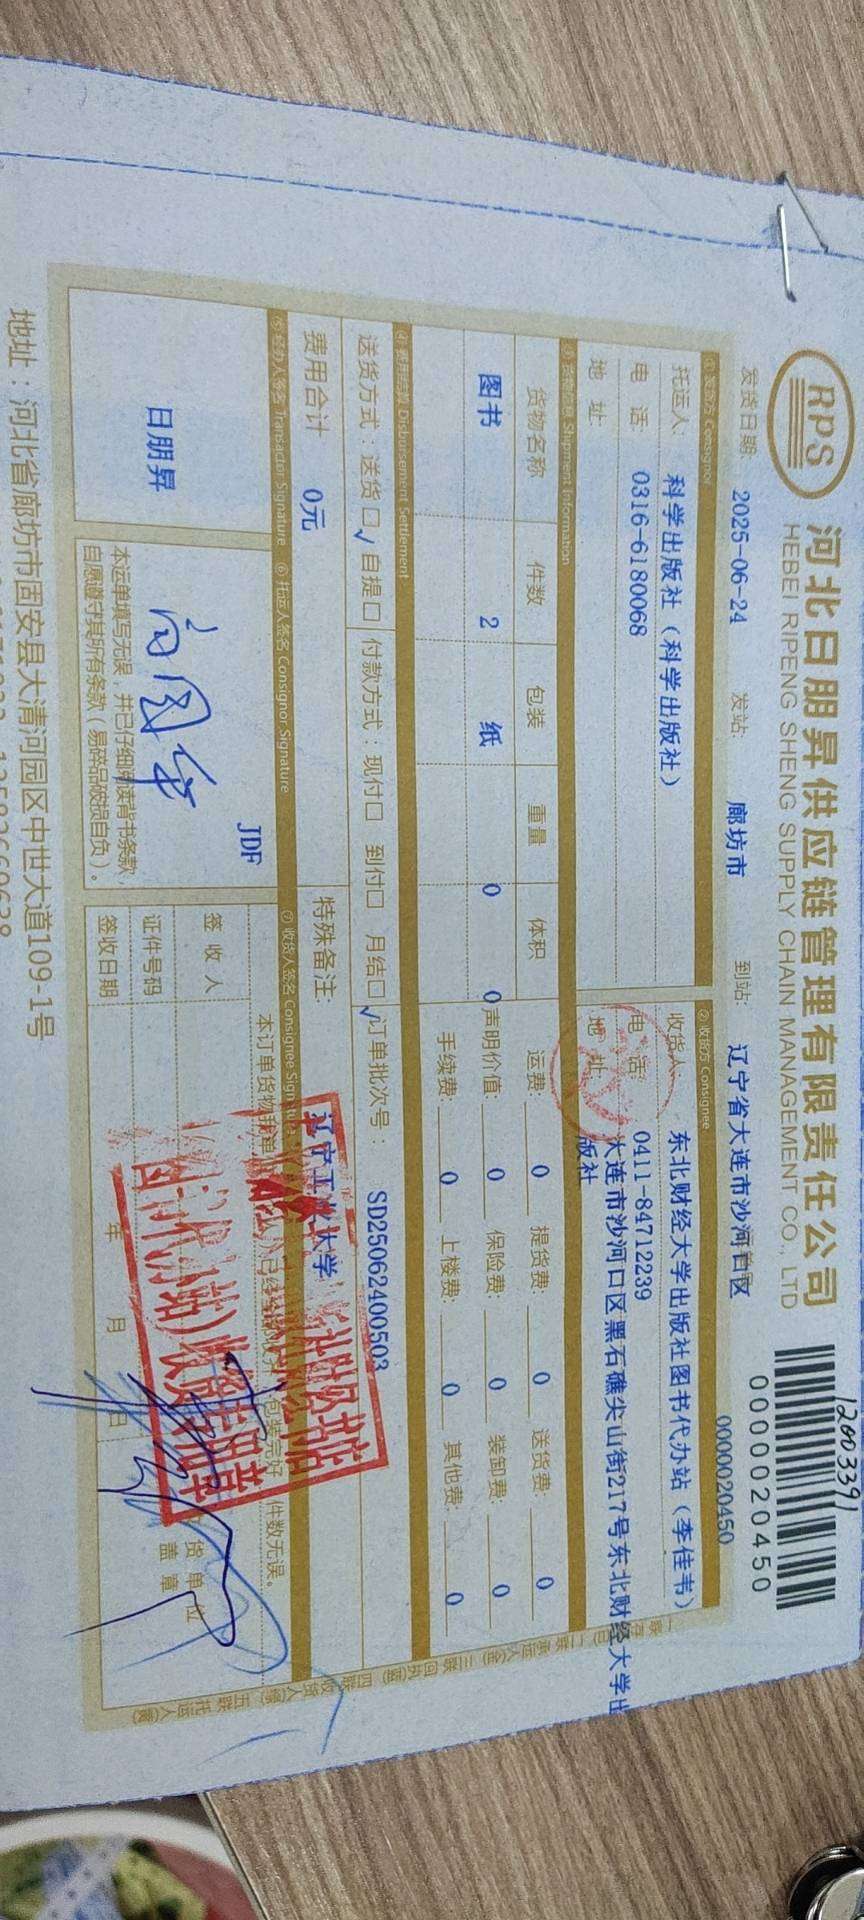 12003391
RPS
河北日朋昇供应链管理有限责任公司
HEBEI RIPENG SHENG SUPPLY CHAIN MANAGEMENT CO., LTD
0000020450
发货日期: 2025-06-24 发站: 廊坊市 到站: 辽宁省大连市沙河口区 0000020450
① 发货方 Consignor
托运人: 科学出版社（科学出版社）
电 话: 0316-6180068
地 址:
② 收货方 Consignee
收货人: 东北财经大学出版社图书代办站（李佳韦）
电 话: 0411-84712239
地 址: 大连市沙河口区黑石礁尖山街217号东北财经大学出
版社
③ 货物信息 Shipment Information
货物名称 件数 包装 重量 体积
图书 2 纸 0 0
运费: 0 提货费: 0 送货费: 0
声明价值: 0 保险费: 0 装卸费: 0
手续费: 0 上楼费: 0 其他费: 0
④ 费用结算 Disbursement Settlement
送货方式：送货□ ✓自提□ 付款方式：现付□ 到付□ 月结□✓ 订单批次号： SD25062400503
费用合计 0元 特殊备注: 辽宁工业大学
⑤ 经办人签名 Transactor Signature ⑥ 托运人签名 Consignor Signature ⑦ 收货人签名 Consignee Signature
日朋昇
JDF
本运单填写无误，并已仔细阅读背书条款，
自愿遵守其所有条款（易碎品破损自负）。
本订单货物 包装完好 件数无误。
签 收 人
证件号码
签收日期 年 月 日
货单位
盖 章
收货专用章
地址：河北省廊坊市固安县大清河园区中世大道109-1号